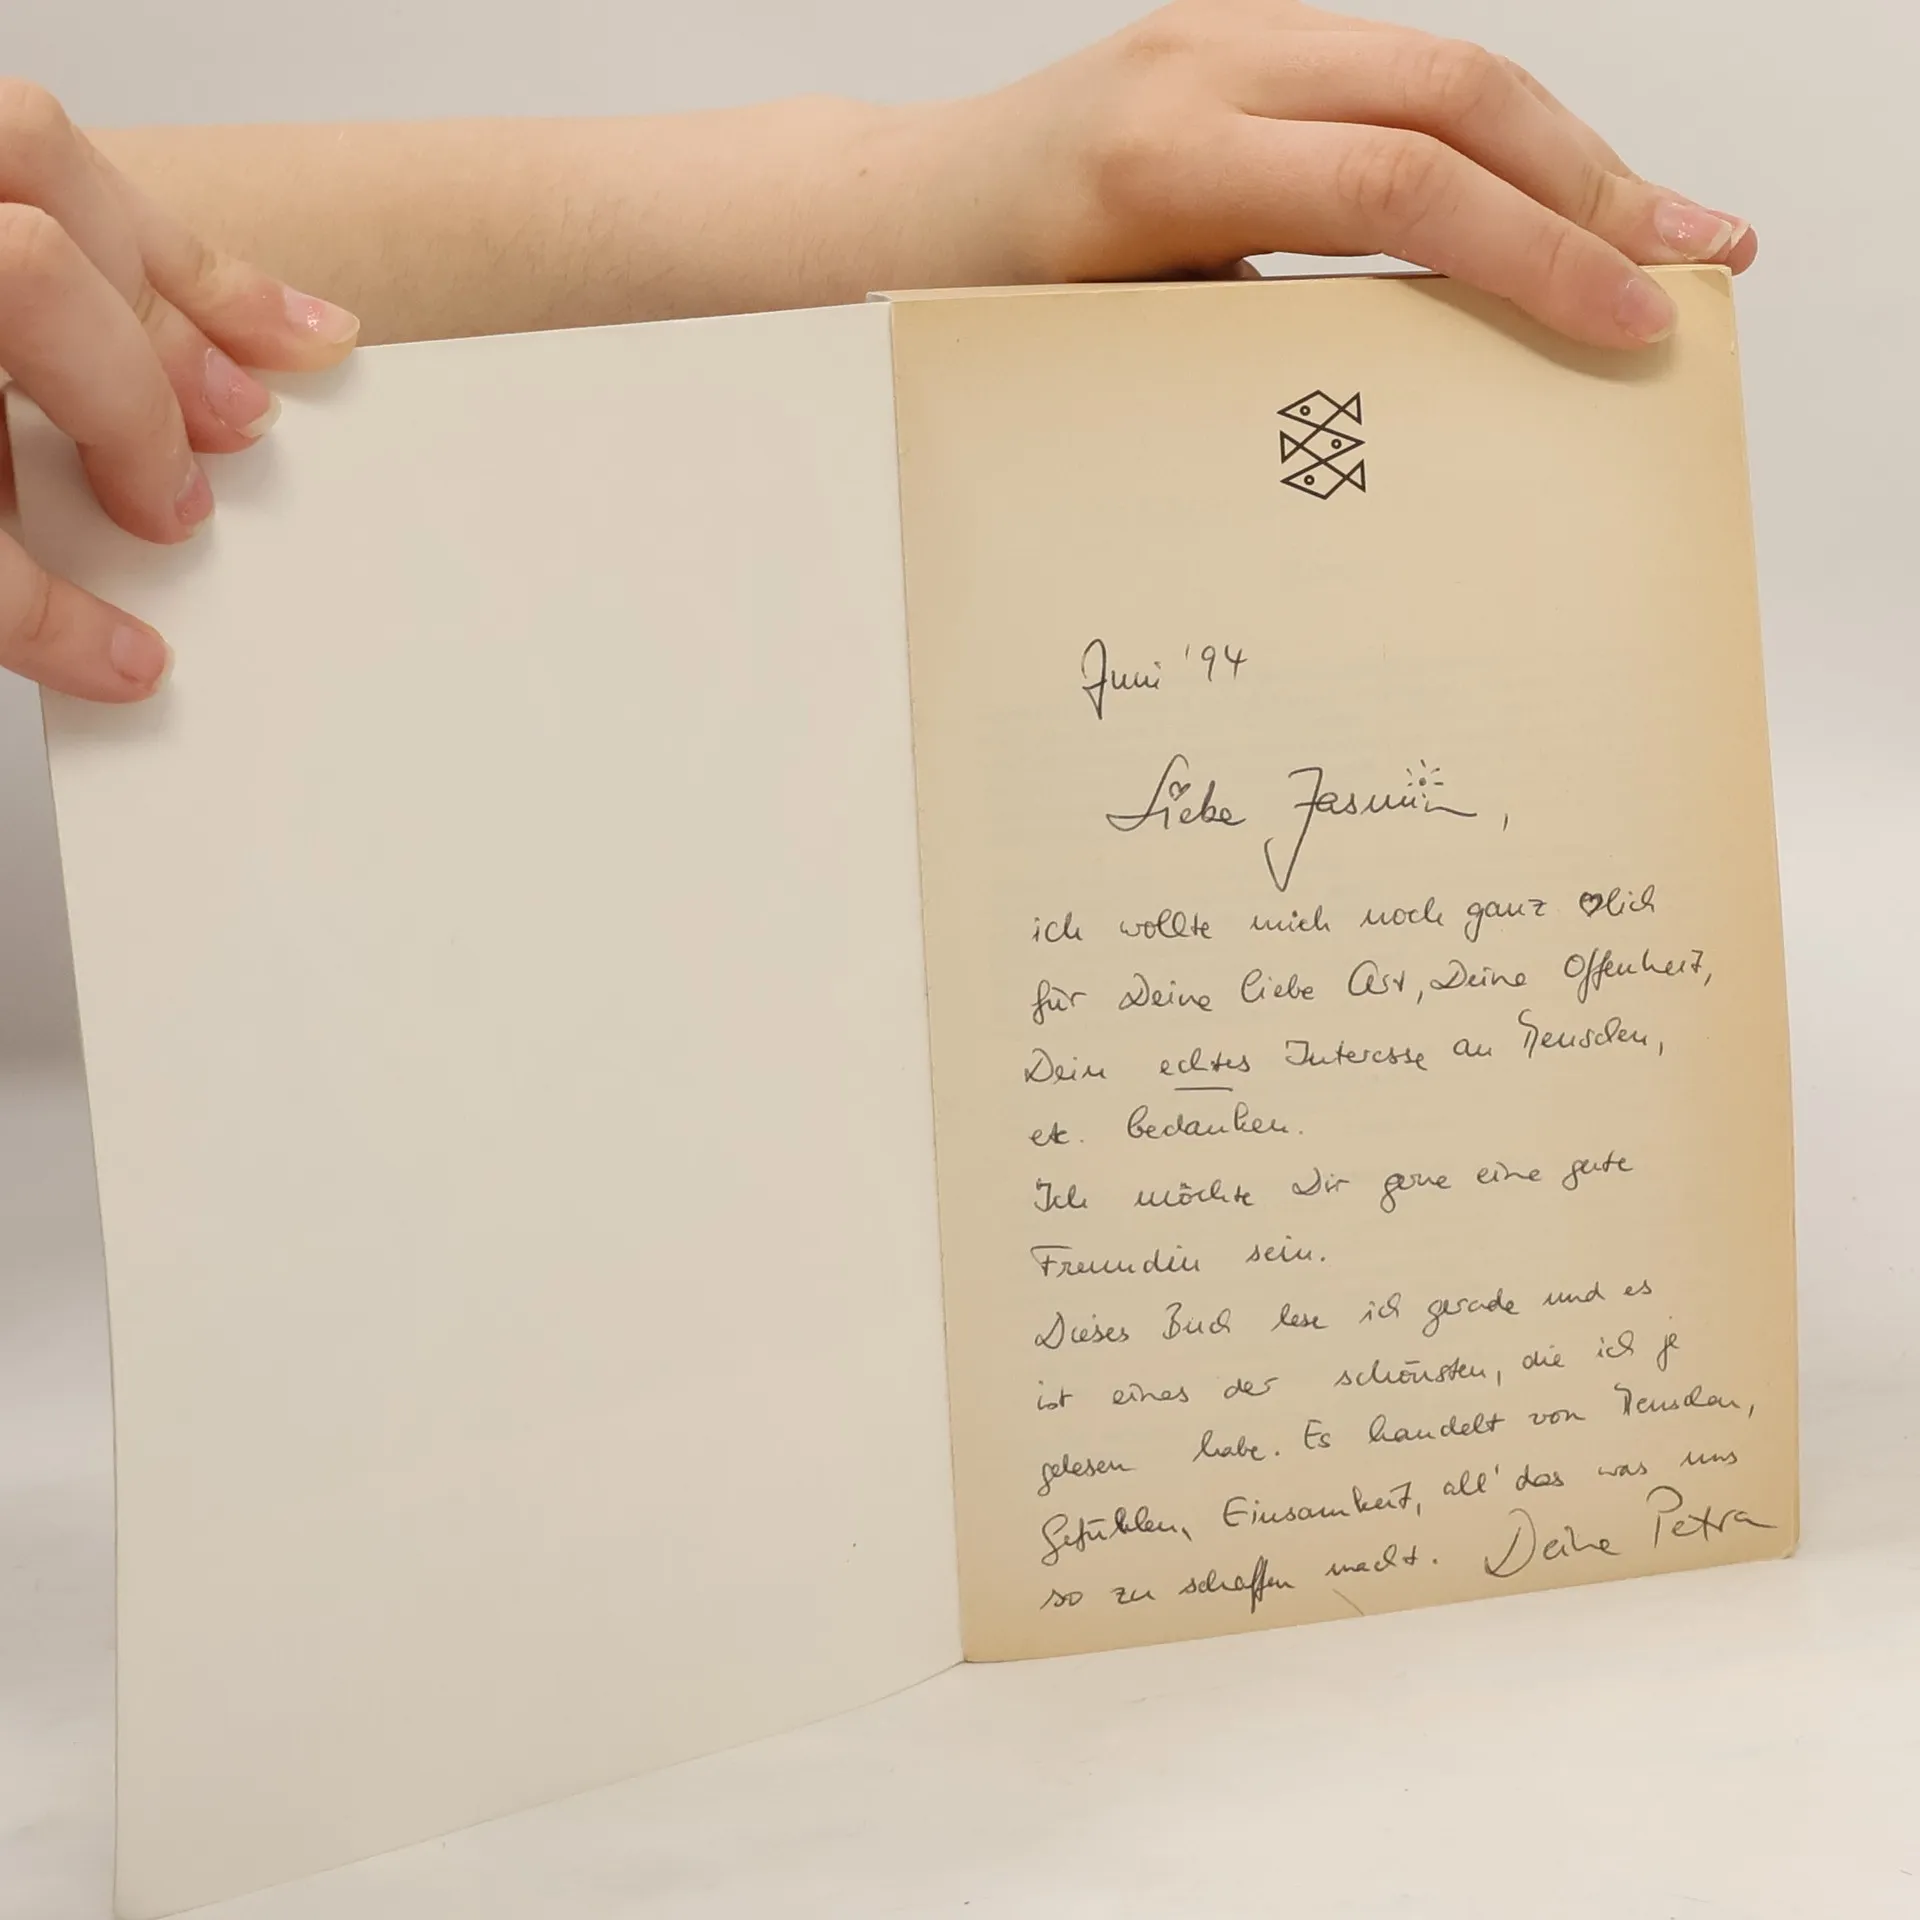 Juni '94
Liebe Jasmin,
ich wollte mich noch ganz ♡lich
für Deine liebe Art, Deine Offenheit,
Dein echtes Interesse an Menschen,
etc. bedanken.
Ich möchte Dir gerne eine gute
Freundin sein.
Dieses Buch lese ich gerade und es
ist eines der schönsten, die ich je
gelesen habe. Es handelt von Menschen,
Gefühlen, Einsamkeit, all' das was uns
so zu schaffen macht. Deine Petra